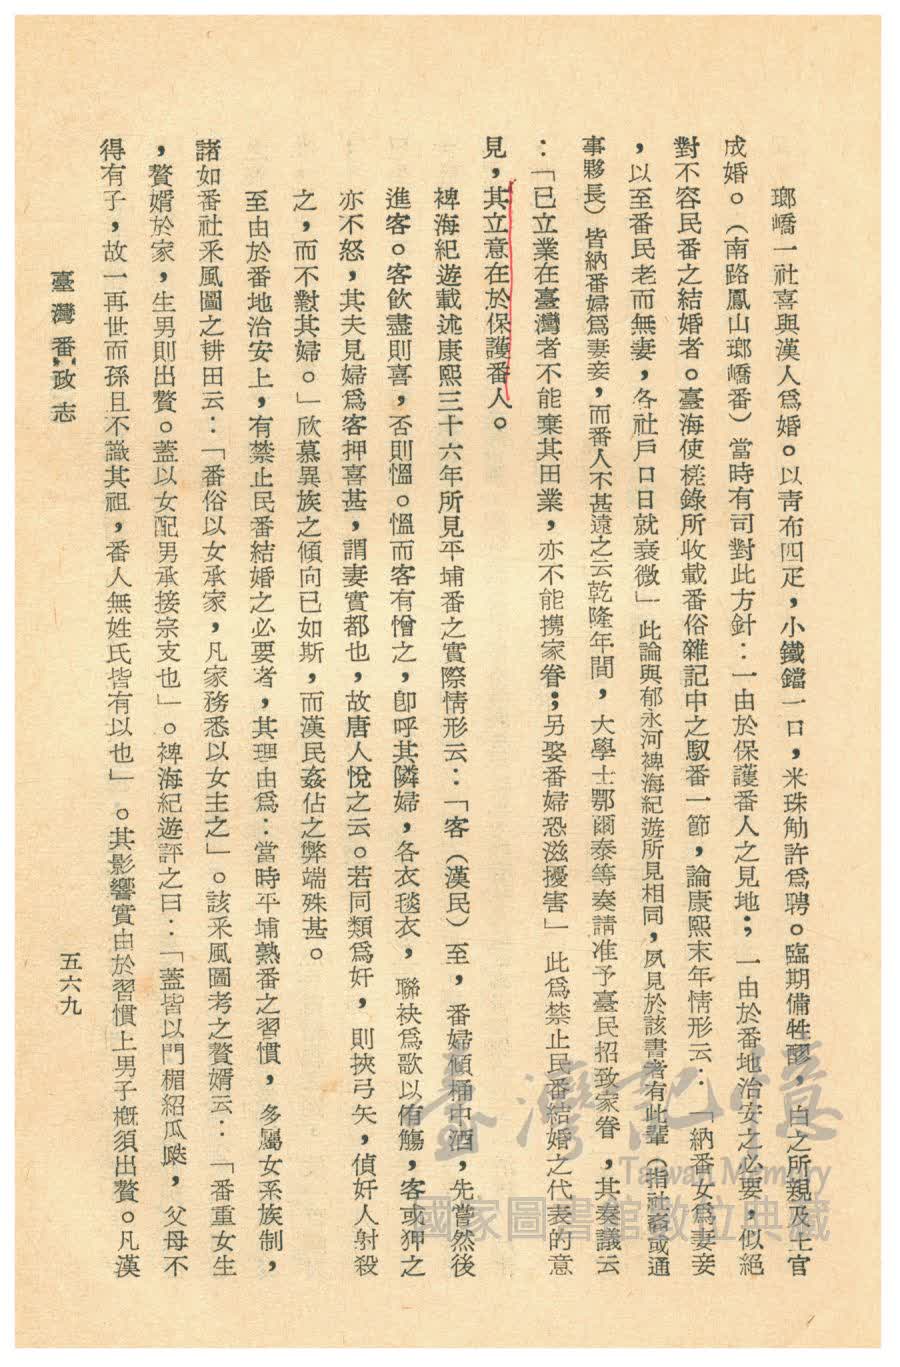 瑯嶠一社喜與漢人爲婚。以靑布四疋，小鐵鐺一口，米珠觔許爲聘。臨期備牲醪，自之所親及土官
成婚。（南路鳳山瑯嶠番）當時有司對此方針：一由於保護番人之見地；一由於番地治安之必要，似絕
對不容民番之結婚者。臺海使槎錄所收載番俗雜記中之馭番一節，論康熙末年情形云：「納番女爲妻妾
，以至番民老而無妻，各社戶口日就衰微」此論與郁永河裨海紀遊所見相同，夙見於該書者有此輩（指社商或通
事夥長）皆納番婦爲妻妾，而番人不甚遠之云乾隆年間，大學士鄂爾泰等奏請准予臺民招致家眷，其奏議云
：「已立業在臺灣者不能棄其田業，亦不能携家眷；另娶番婦恐滋擾害」此爲禁止民番結婚之代表的意
見，其立意在於保護番人。
裨海紀遊載述康熙三十六年所見平埔番之實際情形云：「客（漢民）至，番婦傾桶中酒，先嘗然後
進客。客飮盡則喜，否則慍。慍而客有憎之，卽呼其隣婦，各衣毯衣，聯袂爲歌以侑觴，客或狎之
亦不怒，其夫見婦爲客押喜甚，謂妻實都也，故唐人悅之云。若同類爲奸，則挾弓矢，偵奸人射殺
之，而不懟其婦。」欣慕異族之傾向已如斯，而漢民姦佔之弊端殊甚。
至由於番地治安上，有禁止民番結婚之必要者，其理由爲：當時平埔熟番之習慣，多屬女系族制，
諸如番社釆風圖之耕田云：「番俗以女承家，凡家務悉以女主之」。該釆風圖考之贅婿云：「番重女生
，贅婿於家，生男則出贅。蓋以女配男承接宗支也」。裨海紀遊評之曰：「蓋皆以門楣紹瓜瓞，父母不
得有子，故一再世而孫且不識其祖，番人無姓氏皆有以也」。其影響實由於習慣上男子槪須出贅。凡漢
臺灣番政志
五六九
臺灣記憶
Taiwan Memory
國家圖書館數位典藏